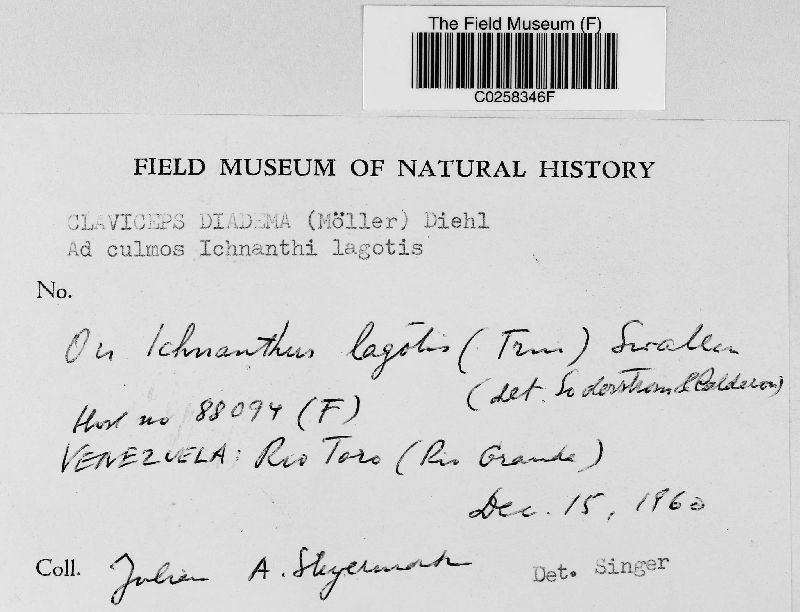 The Field Museum (F)
C0258346F
FIELD MUSEUM OF NATURAL HISTORY
CLAVICEPS DIADEMA (Möller) Diehl
Ad culmos Ichnanthi lagotis
No.
On Ichnanthus lagotis (Trin) Swallen
(det. Soderstrom & Calderon)
Host no 88094 (F)
VENEZUELA: Rio Toro (Rio Grande)
Dec. 15, 1960
Coll. Julian A. Steyermark Det. Singer